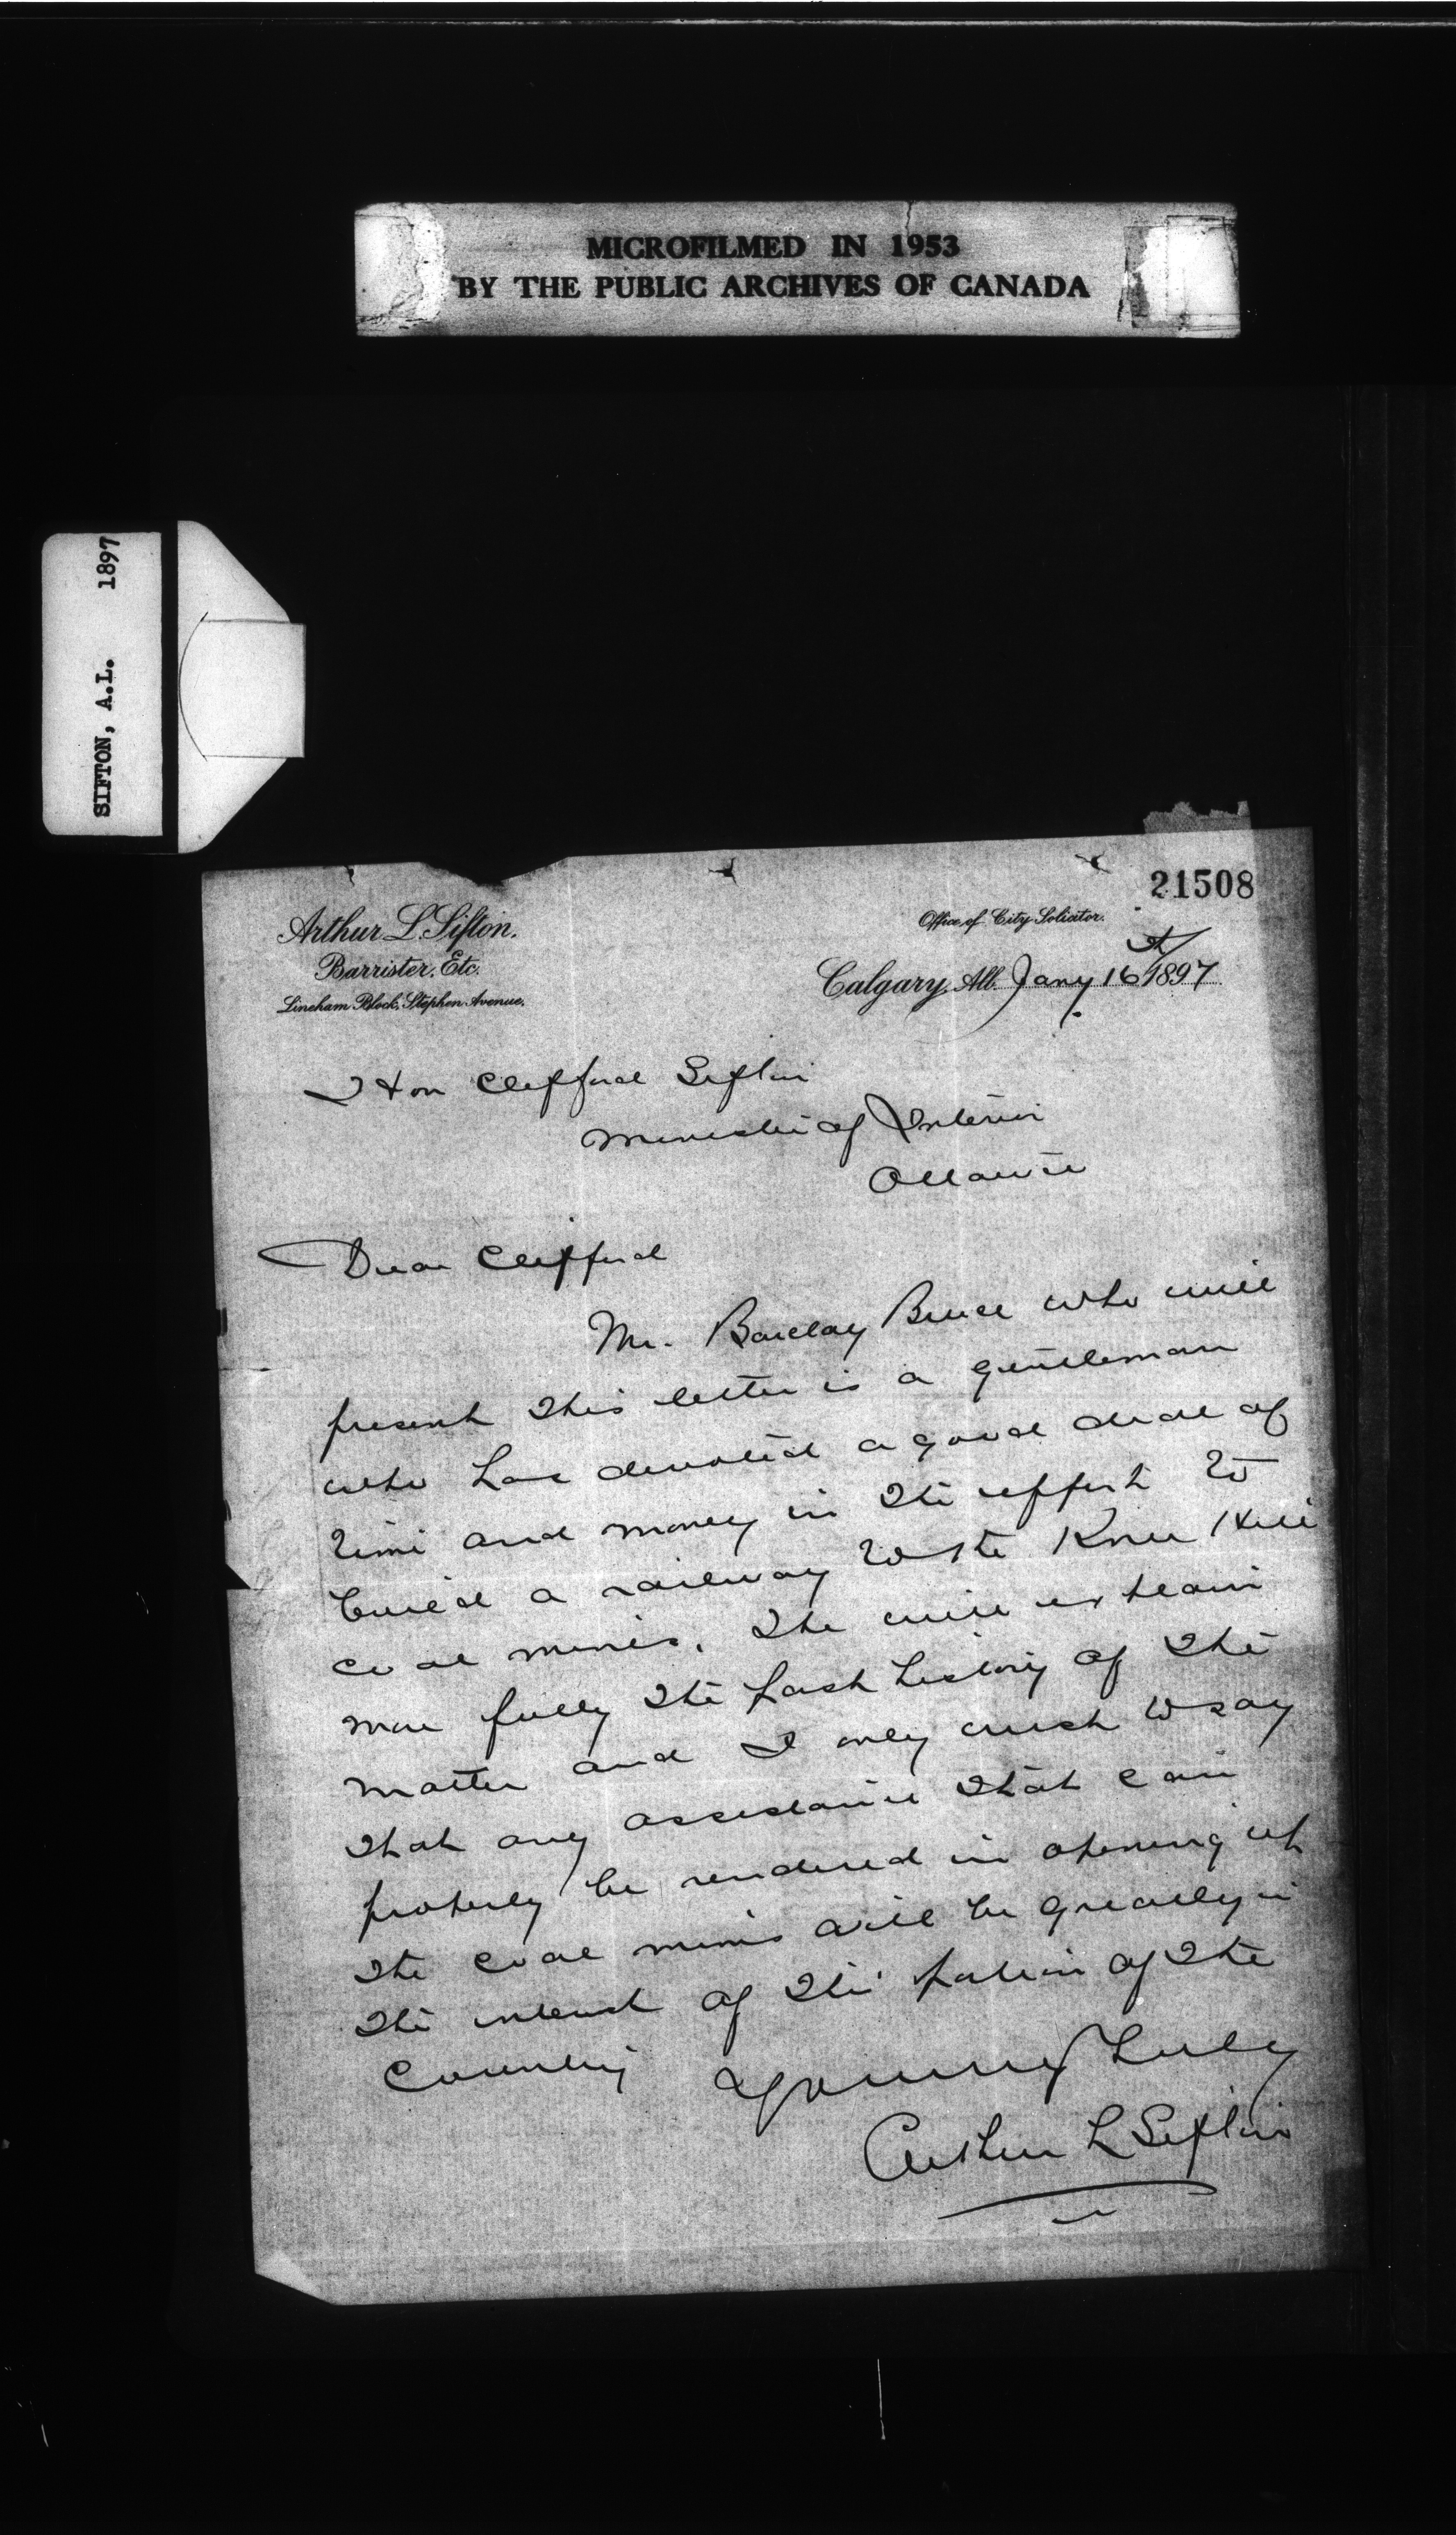 MICROFILMED IN 1953
BY THE PUBLIC ARCHIVES OF CANADA
SIFTON, A.L. 1897
21508
Arthur L. Sifton.
Barrister, Etc.
Lineham Block, Stephen Avenue.
Office of City Solicitor.
Calgary, Alb. Jany 16th 1897
Hon Clifford Sifton
Minister of Interior
Ottawa
Dear Clifford
Mr. Barclay Bruce who will
present this letter is a gentleman
who has devoted a good deal of
time and money in the effort to
build a railway to the Knee Hill
coal mines. He will explain
more fully the past history of the
matter and I only wish to say
that any assistance that can
properly be rendered in opening up
the coal mines will be greatly in
the interest of this portion of the
Country
Yours truly
Arthur L Sifton